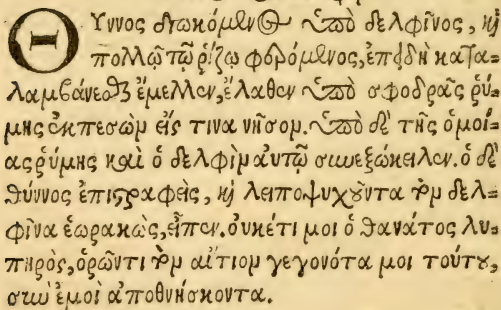 Θύννος διωκόμενος ὑπὸ δελφῖνος, καὶ
πολλῷ τῷ ῥίζῳ φερόμενος, ἐπειδὴ καταλα-
λαμβάνεσθαι ἔμελλεν, ἔλαθεν ὑπὸ σφοδρᾶς ῥύ-
μης ἐκπεσὼν εἴς τινα νῆσον. ὑπὸ δὲ τῆς ὁμοί-
ας ῥύμης καὶ ὁ δελφὶν αὐτῷ συνεξώκειλεν. ὁ δὲ
θύννος ἐπιστραφεὶς, καὶ λειποψυχοῦντα τὸν δελ-
φῖνα ἑωρακὼς, εἶπεν. οὐκέτι μοι ὁ θανάτος λυ-
πηρὸς, ὁρῶντι τὸν αἴτιον γεγονότα μοι τούτου,
σὺν ἐμοὶ ἀποθνήσκοντα.